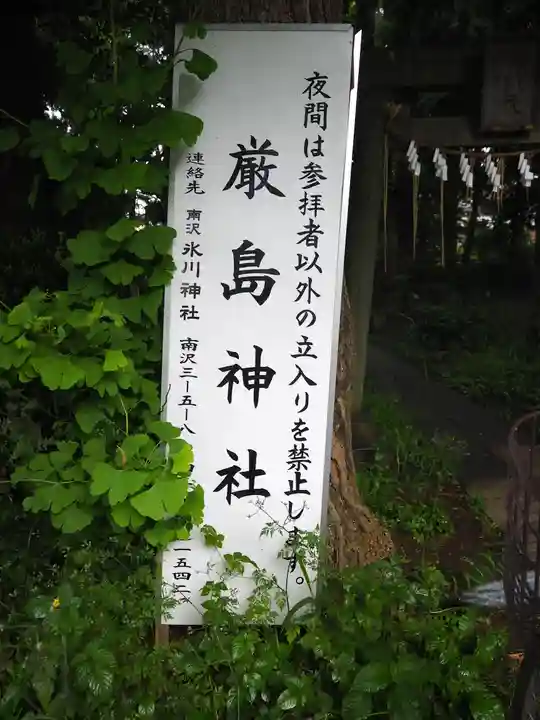 夜間は参拝者以外の立入りを禁止します。
厳島神社
連絡先 南沢 氷川神社 南沢三ー五ー八 一五四二